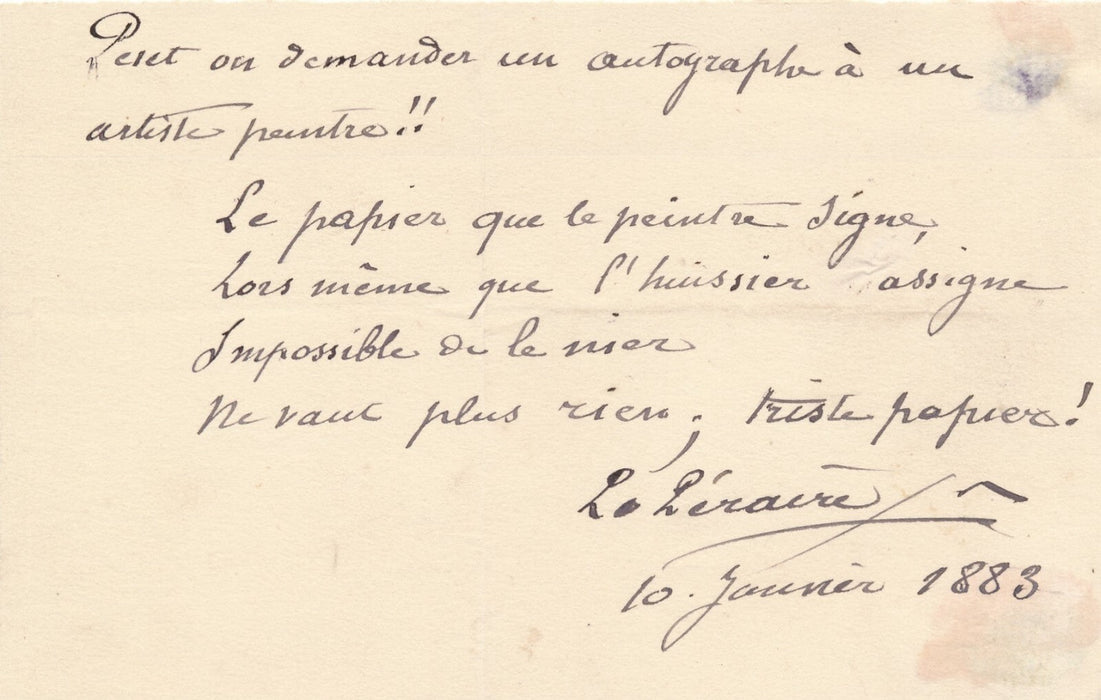 Peut on demander un autographe à un
artiste peintre!!
Le papier que le peintre signe,
Lors même que l'huissier assigne
Impossible de le nier
Ne vaut plus rien; triste papier!
Lo Péraire
10. Janvier 1883